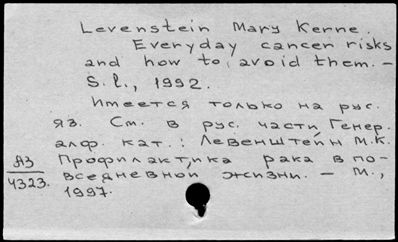 Levenstein Mary Kerne.
Everyday cancer risks
and how to avoid them. –
S.l., 1992.
Имеется только на рус.
яз. См. в рус. части Генер.
алф. кат.: Левенштейн М.К.
Профилактика рака в по-
вседневной жизни. – М.,
1997.
АЗ
4323.